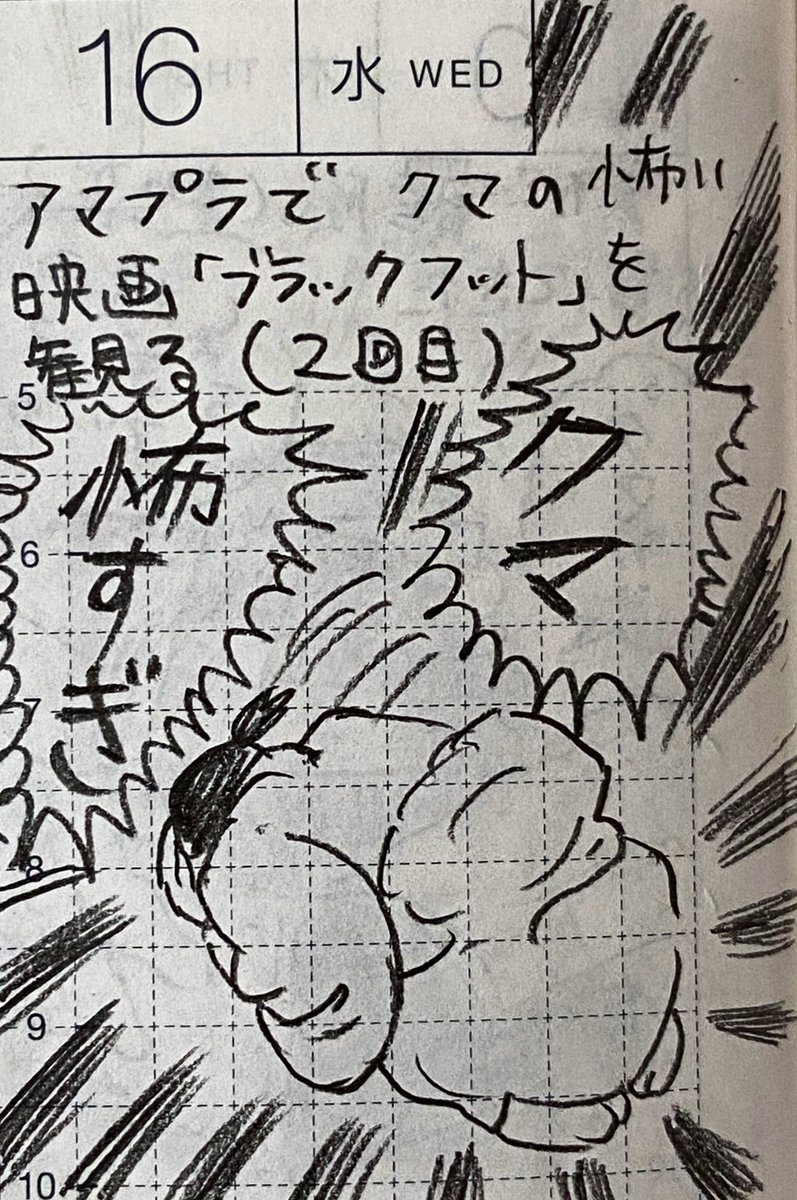 16 水 WED
アマプラで クマの怖い
映画「ブラックフット」を
観る（2回目）
クマ
怖すぎ
5
6
7
8
9
10